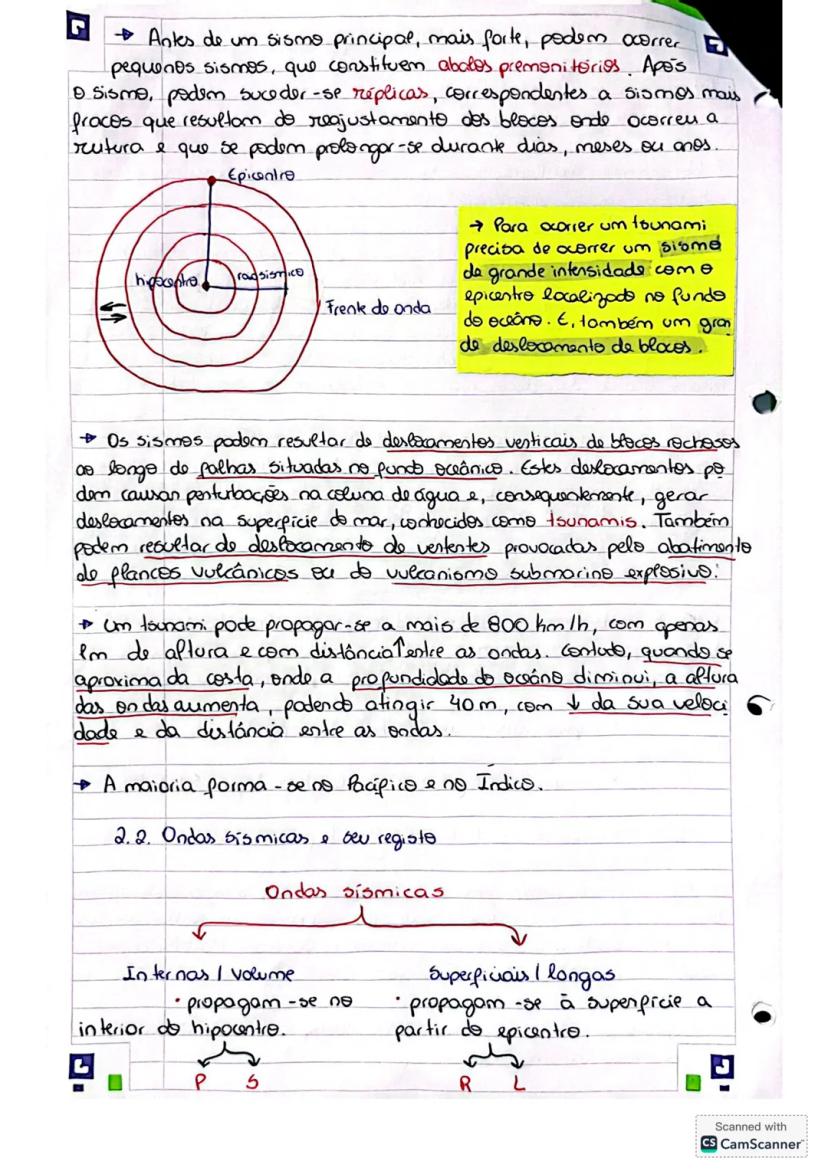 → Antes de um sismo principal, mais forte, podem ocorrer
pequenos sismos, que constituem abalos premonitórios. Após
o sismo, podem suceder-se réplicas, correspondentes a sismos mais
fracos que resultam do reajustamento dos blocos onde ocorreu a
rutura e que se podem prolongar-se durante dias, meses ou anos.
Epicentro
hipocentro
raio sísmico
Frente de onda
→ Para ocorrer um tsunami
precisa de ocorrer um sismo
de grande intensidade com o
epicentro localizado no fundo
do oceâno. E, também um gran
de deslocamento de blocos.
→ Os sismos podem resultar de deslocamentos verticais de blocos rochosos
ao longo de falhas situadas no fundo oceânico. Estes deslocamentos po
dem causar perturbações na coluna de água e, consequentemente, gerar
deslocamentos na superfície do mar, conhecidos como tsunamis. Também
podem resultar do deslocamento de vertentes provocadas pelo abatimento
de flancos vulcânicos ou do vulcanismo submarino explosivo.
→ Um tsunami pode propagar-se a mais de 800 km/h, com apenas
1m de altura e com distância ↑ entre as ondas. Contudo, quando se
aproxima da costa, onde a profundidade do oceâno diminui, a altura
das ondas aumenta, podendo atingir 40 m, com ↓ da sua veloci
dade e da distância entre as ondas.
→ A maioria forma-se no Pacífico e no Índico.
2.2. Ondas sísmicas e seu registo
Ondas sísmicas
Internas / volume
Superficiais / longas
• propagam-se no
interior do hipocentro.
• propagam-se à superfície a
partir do epicentro.
P S
R L
Scanned with
CS CamScanner